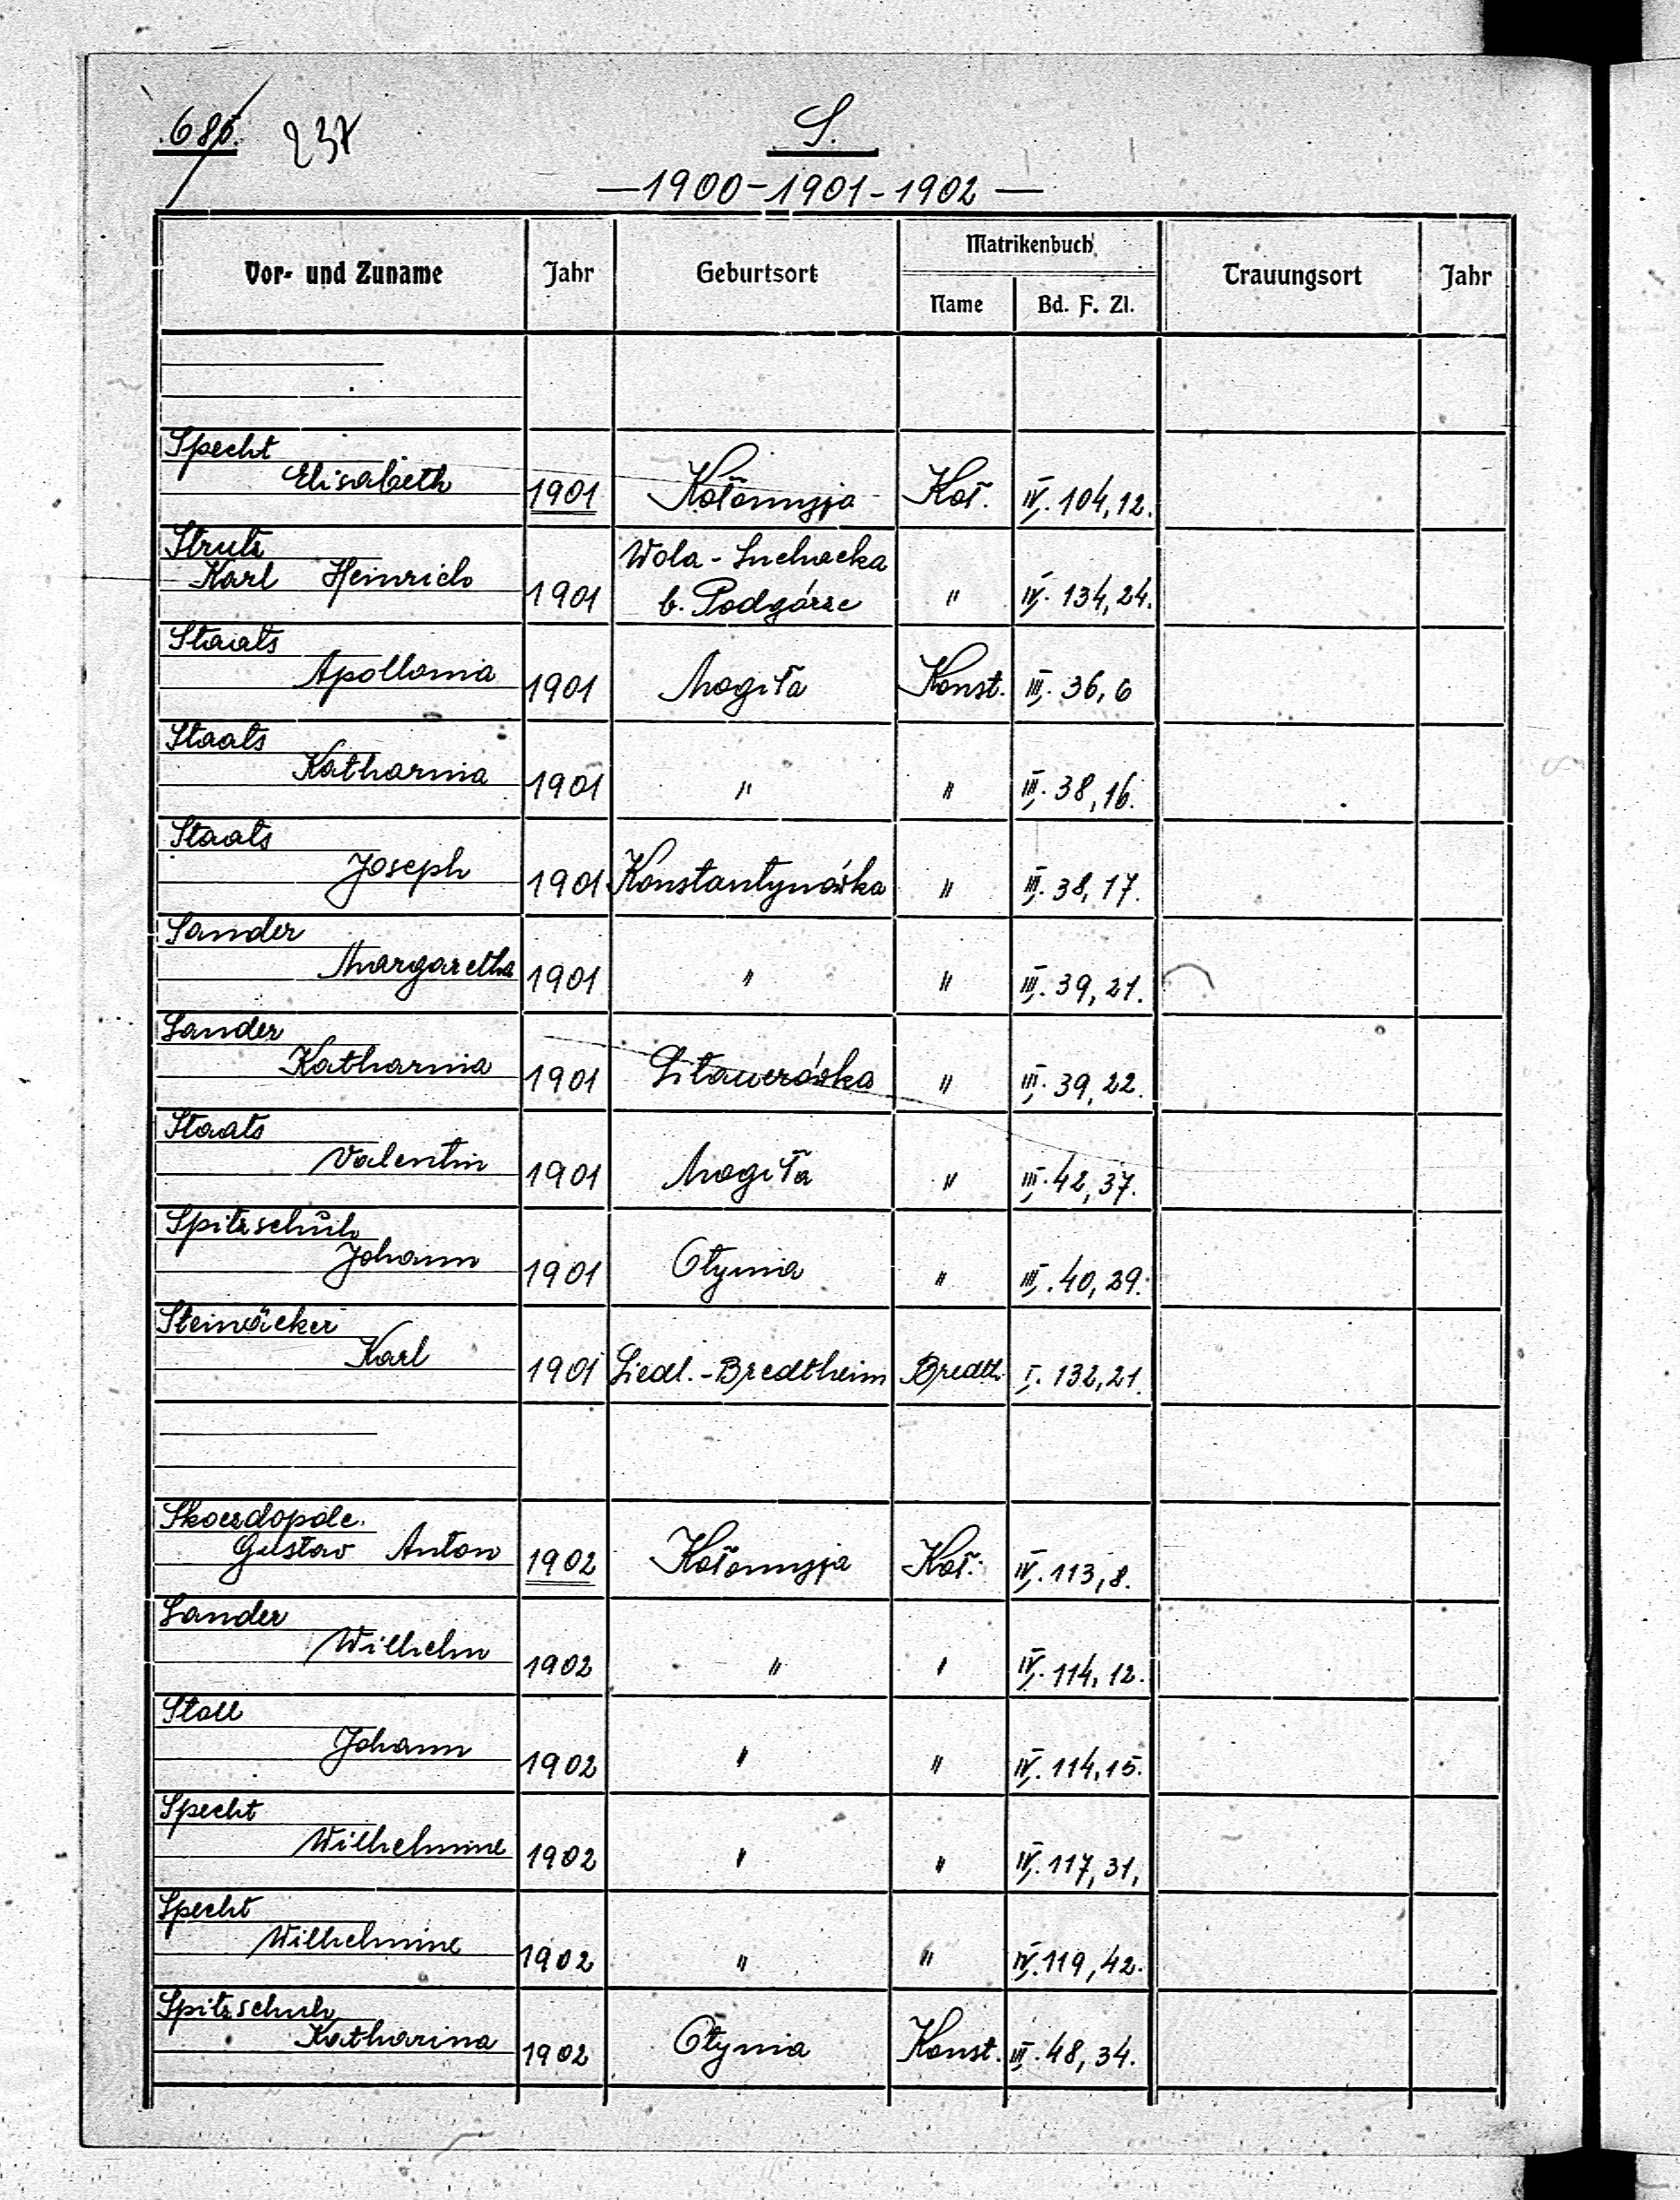 686. 237
S.
—1900-1901-1902—
Vor- und Zuname Jahr Geburtsort Matrikenbuch Trauungsort Jahr
Name Bd. F. Zl.
Specht
Elisabeth 1901 Kołomyja Koł. IV. 104,12.
Strutz Wola-Suchacka
Karl Heinrich 1901 b. Podgórze " IV. 134,24.
Staats
Apollonia 1901 Mogiła Konst. III. 36,6
Staats
Katharina 1901 " " III. 38,16.
Staats
Joseph 1901 Konstantynówka " III. 38,17.
Sander
Margaretha 1901 " " III. 39,21.
Sander
Katharina 1901 Sitawerówka " III. 39,22.
Staats
Valentin 1901 Mogiła " III. 42,37.
Spitzschuh
Johann 1901 Otynia " III. 40,29.
Steinäcker
Karl 1901 Siedl.-Bredtheim Bredth. I. 132,21.
Gustav Anton 1902 Kołomyja Koł. IV. 113,8.
Sander
Wilhelm 1902 " " IV. 114,12.
Stoll
Johann 1902 " " IV. 114,15.
Specht
Wilhelmine 1902 " " IV. 117,31,
Specht
Wilhelmine 1902 " " IV. 119,42.
Spitzschuh
Katharina 1902 Otynia Konst. III. 48,34.